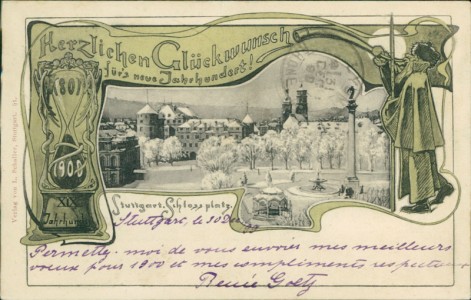 Herzlichen Glückwunsch
für's neue Jahrhundert!
1801
1900
XIX
Jahrhundert
Stuttgart. Schlossplatz.
Stuttgart, le 30 Dec.
Permettez-moi de vous envoyer mes meilleurs
voeux pour 1900 et mes compliments respectueux
Renée Goetz